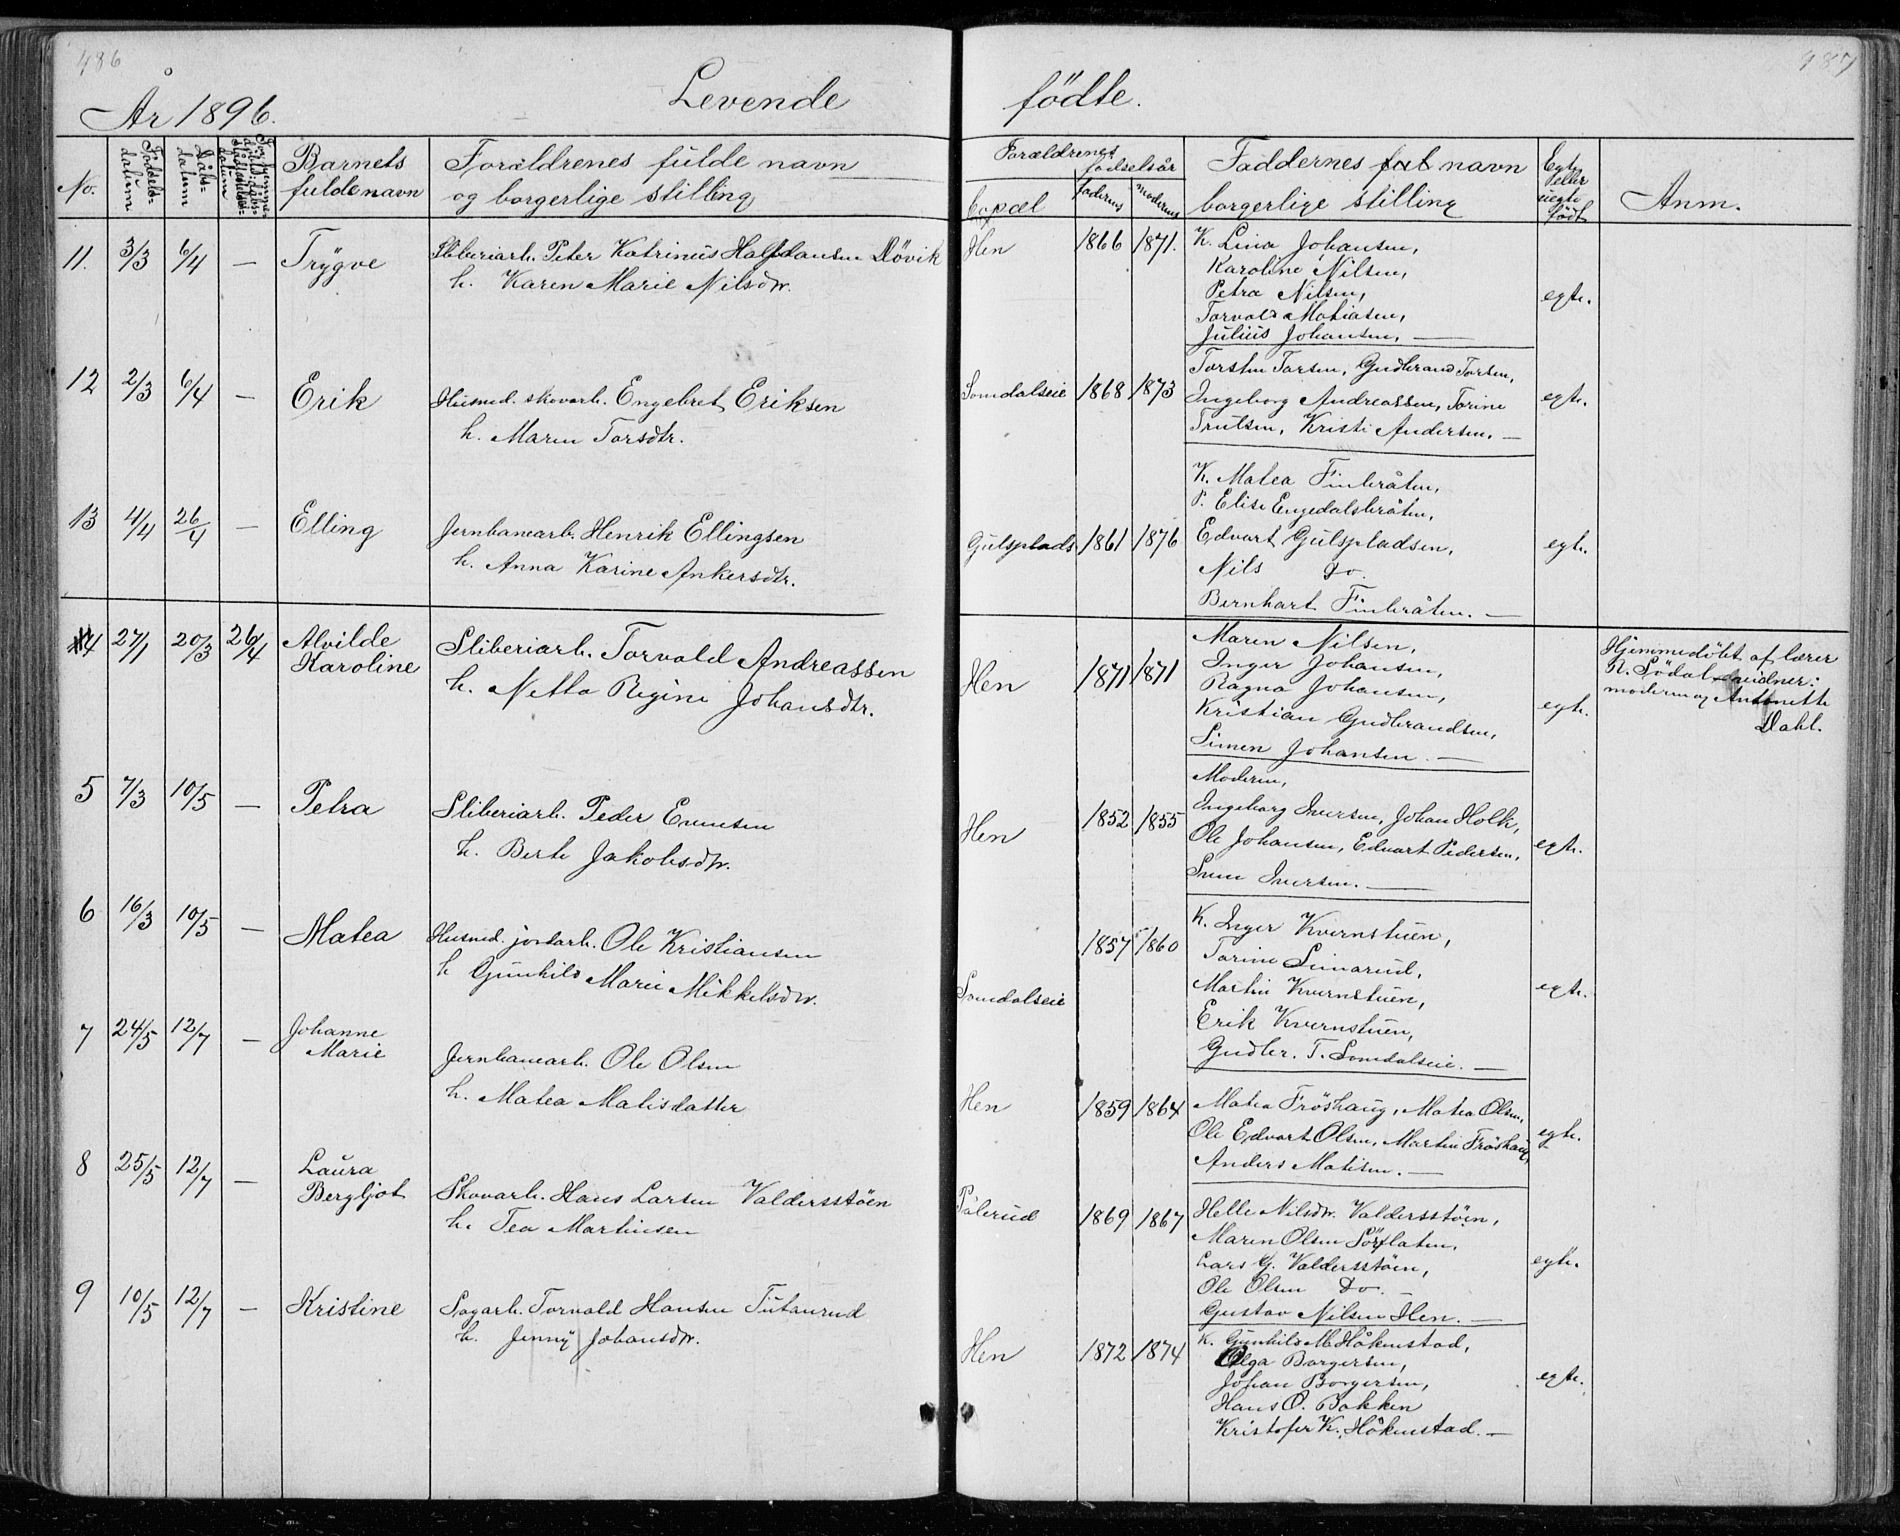 486
487
År 1896.
Levende
födte.
No.
Födsels-
datum
Dåbs-
datum
Barnets
fulde navn
Forældrenes fulde navn
og borgerlige stilling
Bopæl
Forældrenes
födselsår
faderens
moderens
Faddernes navn
borgerlige stilling
Egte
eller
uegte
födt
Anm.
11. 3/3 6/4 — Trygve Sliberiarb. Peter Katrinus Halfdansen Dövik
h. Karen Marie Nilsdtr.
Hen 1866 1871. K. Lina Johansen,
Karoline Nilsen,
Petra Nilsen, egte.
Torvald Matiasen,
Julius Johansen. —
12 2/3 6/4 — Erik Husmd. skovarb. Engebret Eriksen
h. Maren Torsdtr.
Somdalseie 1868 1873 Torsten Torsen, Gudbrand Torsen,
Ingeborg Andreassen, Torine egte.
Trulsen, Kristi Andersen. —
13 4/4 26/4 — Elling Jernbanearb. Henrik Ellingsen
h. Anna Karine Ankersdtr.
Gulsplads 1861 1876 K. Matea Finbråten,
P. Elise Engedalsbråten,
Edvart Gulspladsen, egte.
Nils Do.
Bernhart Finbråten. —
4 27/1 20/3 26/4 Alvilde
Karoline
Sliberiarb. Torvald Andreassen
h. Netta Regine Johansdtr.
Hen 1871 1871 Maren Nilsen,
Inger Johansen,
Ragna Johansen, egte.
Kristian Gudbrandsen,
Simen Johansen. —
Hjemmedöbt af lærer
N. Södal vidner:
moderen og Antonette
Dahl.
5 7/3 10/5 — Petra Sliberiarb. Peder Evensen
h. Berte Jakobsdtr.
Hen 1852 1855 Moderen,
Ingeborg Iversen, Johan Holk,
Ole Johansen, Edvart Pedersen, egte.
Iver Iversen. —
6 16/3 10/5 — Matea Husmd. jordarb. Ole Kristiansen
h Gunhild Marie Mikkelsdtr.
Somdalseie 1857 1860 K. Inger Kvernstuen,
Torine Simarud,
Martin Kvernstuen, egte.
Erik Kvernstuen,
Gudbr. T. Somdalseie. —
7 24/5 12/7 — Johanne
Marie
Jernbanearb. Ole Olsen
h. Matea Matisdatter
Hen 1859 1864 Matea Fröshaug, Matea Olsen,
Ole Edvart Olsen, Martin Fröshaug, egte.
Anders Matisen. —
8 25/5 12/7 — Laura
Bergljot
Skovarb. Hans Larsen Valdersstöen
h. Tea Martinsen
Pålerud 1869 1867 Helle Nilsdtr. Valdersstöen,
Maren Olsen Sörflaten,
Lars G. Valdersstöen, egte.
Ole Olsen Do. —
Gustav Nilsen Hen. —
9 10/5 12/7 — Kristine Sagarb. Torvald Hansen Tutanrud
h. Jenny Johansdtr.
Hen 1872 1874 K. Gunhild M. Håkenstad,
Olga Borgersen,
Johan Borgersen, egte.
Hans O. Bakken
Kristofer K. Håkenstad. —